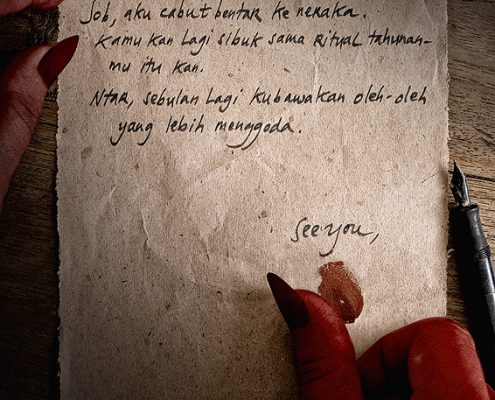 Sob, aku cabut bentar ke neraka.
Kamu kan lagi sibuk sama Ritual tahunan-
mu itu kan.
Ntar, sebulan lagi kubawakan oleh-oleh
yang lebih menggoda.
See you,